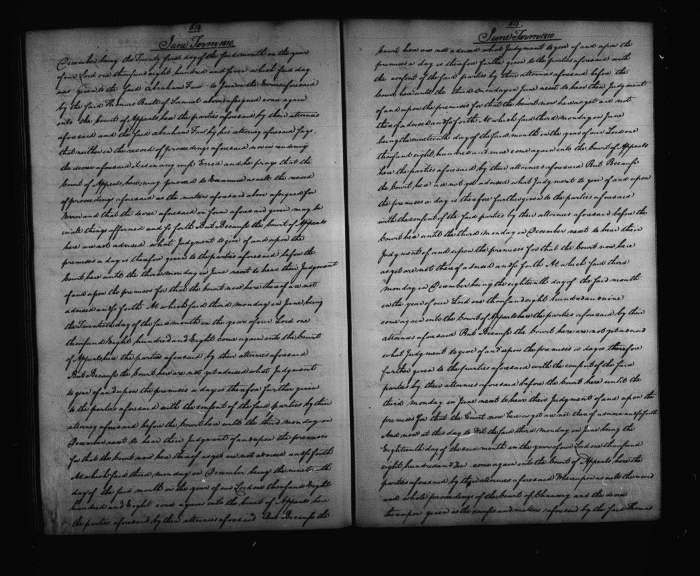 June Term 1810
December being the Twenty first day of the said month in the year
of our Lord one thousand eight hundred and seven which said day
was given to the said Abraham
by the said Thomas of Samuel above assigned come again
unto the Court of Appeals here the parties aforesaid by their attornies
aforesaid and the said Abraham by his attorney aforesaid says
that neither in the record of proceedings aforesaid nor in rendering
the decree aforesaid is in any Erred and he prays that the
Court of Appeals here may proceed to Examine as well the record
of proceedings aforesaid as the matters aforesaid above assigned for
Error and that the decree aforesaid in form aforesaid given may be
in all things affirmed and so forth But Because the Court of Appeals
here are not advised what Judgment to give of and upon the
premises a day is therefore given to the parties aforesaid before the
Court here until the third monday in June next to hear their Judgment
of and upon the premises for that the Court now here thereof are not
advised and so forth At which said third monday in June being
the Twentieth day of the said month in the year of our Lord one
thousand Eight hundred and Eight come again into the Court
of Appeals here the parties aforesaid by their attornies aforesaid
But Because the Court here are not yet advised what Judgment
to give of and upon the premises a day is therefore further given
to the parties aforesaid with the consent of the said parties by their
attornies aforesaid before the Court here until the third monday in
December next to hear their Judgment of and upon the premises
for that the Court now here thereof as yet are not advised and so forth
At which said third monday in December being the
day of the said month in the year of our Lord one thousand Eight
hundred and Eight come again into the Court of Appeals here
the parties aforesaid by their attornies aforesaid But Because the
June Term 1810
Court here are not advised what Judgment to give of and upon the
premises a day is therefore further given to the parties aforesaid with
the consent of the said parties by their attornies aforesaid before the
Court here until the third monday in June next to hear their Judgment
of and upon the premises for that the Court now here as yet are not
thereof advised and so forth At which said third monday in June
being the nineteenth day of the said month in the year of our Lord one
thousand eight hundred and nine come again into the Court of Appeals
here the parties aforesaid by their attornies aforesaid But Because
the Court here are not yet advised what Judgment to give of and upon
the premises a day is therefore further given to the parties aforesaid
with the consent of the said parties by their attornies aforesaid before the
Court here until the third monday in December next to hear their
Judgment of and upon the premises for that the Court now here
as yet are not thereof advised and so forth At which said third
monday in December being the eighteenth day of the said month
in the year of our Lord one thousand eight hundred and nine
come again into the Court of Appeals here the parties aforesaid by their
attornies aforesaid But Because the Court here are not yet advised
what Judgment to give of and upon the premises a day is therefore
further given to the parties aforesaid with the consent of the said
parties by their attornies aforesaid before the Court here until the
third monday in June next to hear their Judgment of and upon the
premises for that the Court now here as yet are not thereof advised and so forth
And now at this day to Wit the said third monday in June being the
Eighteenth day of the said month in the year of our Lord one thousand
eight hundred and Ten come again into the Court of Appeals here the
parties aforesaid by their attornies aforesaid Whereupon as well the record
and whole proceedings of the Court of Chancery and the decree
thereupon given as the causes and matters aforesaid by the said Thomas